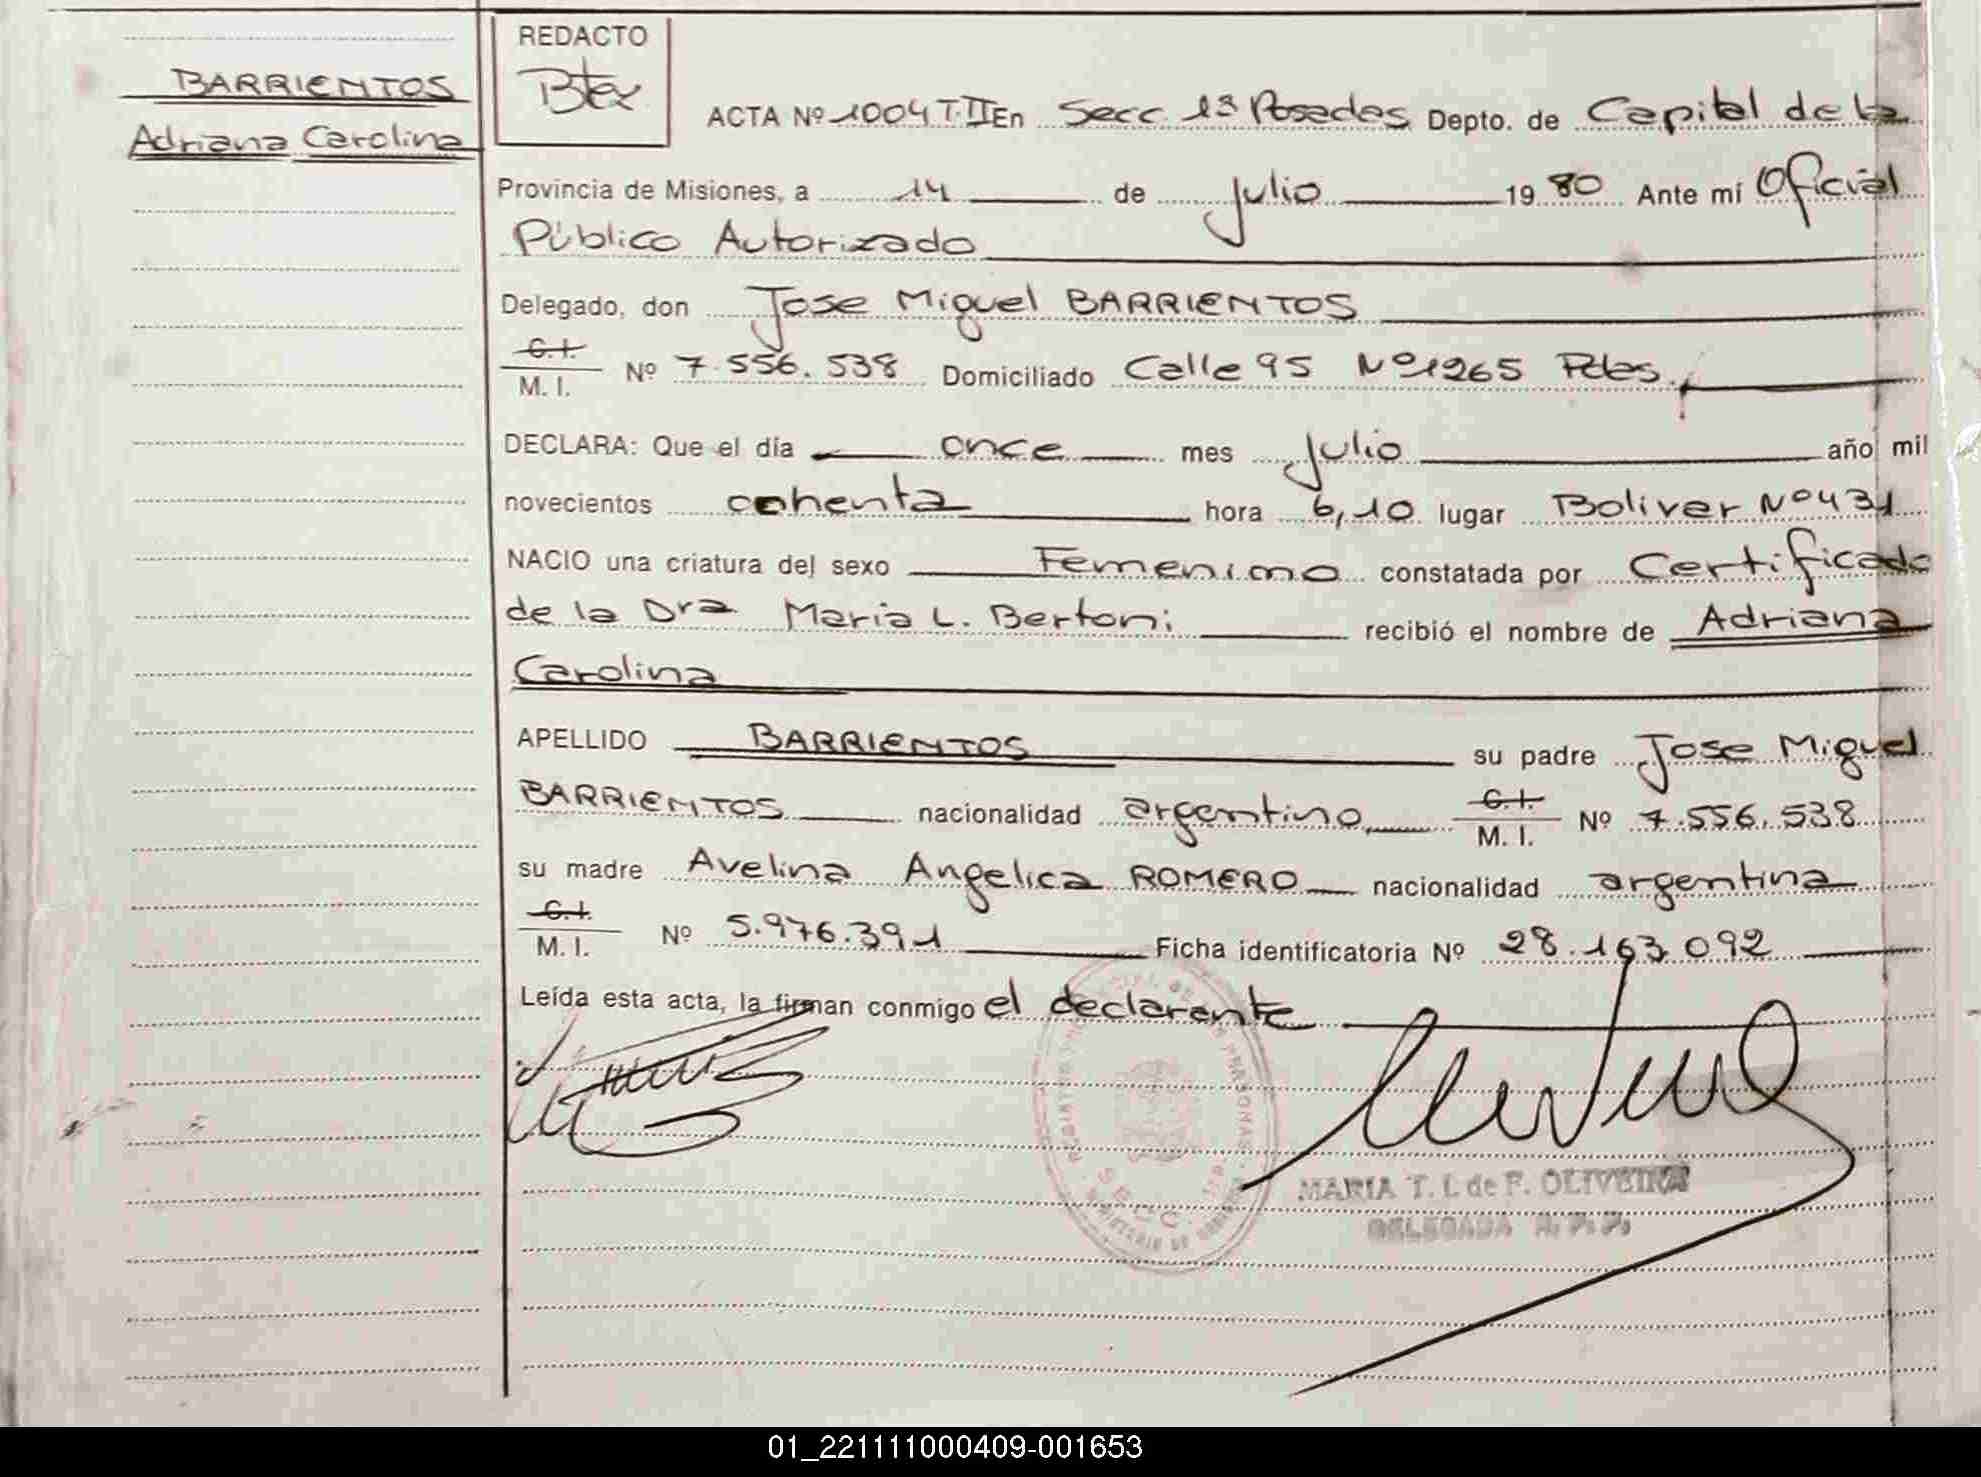 BARRIENTOS
Adriana Carolina
REDACTO
ACTA Nº 1004 T. II En Secc 1ª Posadas Depto. de Capital de la
Provincia de Misiones, a 14 de Julio 1980 Ante mí Oficial
Público Autorizado
Delegado, don Jose Miguel BARRIENTOS
C.I.
M. I. Nº 7.556.538 Domiciliado Calle 95 Nº 1265 Pdas.
DECLARA: Que el día once mes Julio año mil
novecientos ochenta hora 6,10 lugar Bolivar Nº 431
NACIO una criatura del sexo Femenino constatada por Certificado
de la Dra Maria L. Bertoni recibió el nombre de Adriana
Carolina
APELLIDO BARRIENTOS su padre Jose Miguel
BARRIENTOS nacionalidad argentino, C.I.
M. I. Nº 7.556.538
su madre Avelina Angelica ROMERO nacionalidad argentina
C.I.
M. I. Nº 5.976.391 Ficha identificatoria Nº 28.163.092
Leída esta acta, la firman conmigo el declarante
MARIA T. I. de F. OLIVEIRA
DELEGADA R. P. P.
01_221111000409-001653